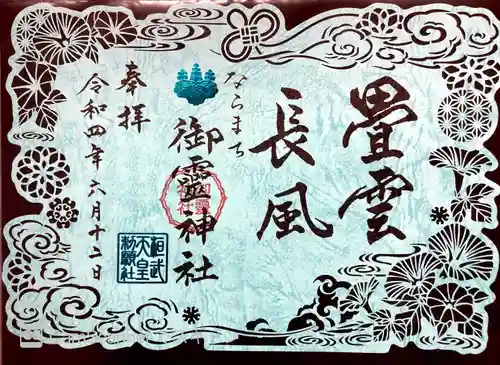 畳雲
長風
ならまち
御霊神社
奉拝
令和四年六月十二日
桓武
天皇
勅願社